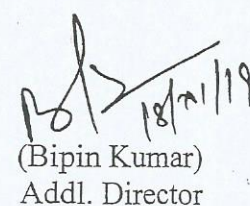 18/11/19
(Bipin Kumar)
Addl. Director